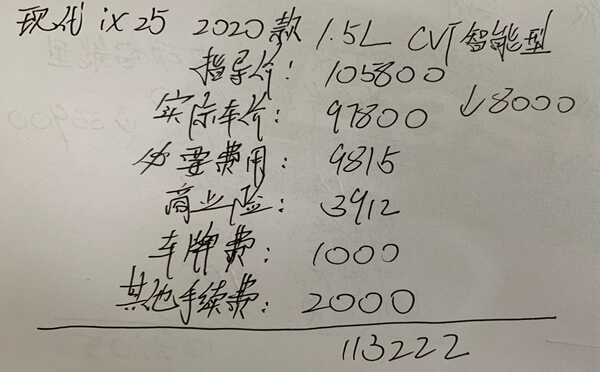 现代 ix25 2020款 1.5L CVT智能型
指导价: 105800
实际车价: 97800 ↓8000
必要费用: 9815
商业险: 3912
车牌费: 1000
其他手续费: 2000
113222